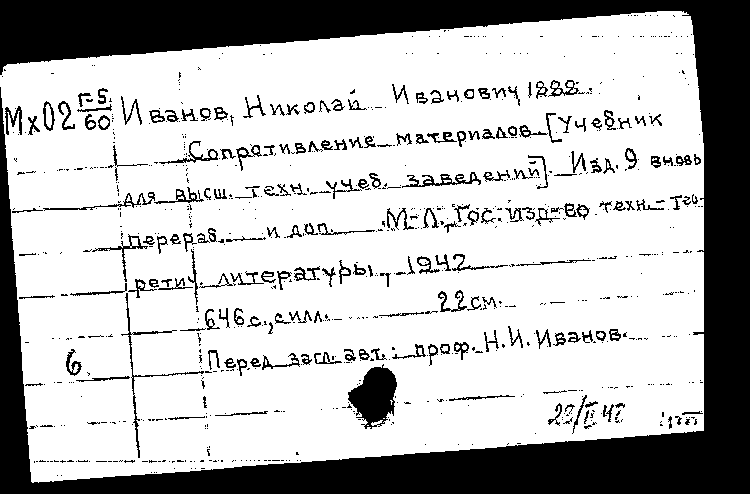 Мх02 Г-5/60 Иванов, Николай Иванович 1888.
Сопротивление материалов [Учебник
для высш. техн. учеб. заведений]. Изд. 9 вновь
перераб. и доп. М-Л, Гос. изд-во техн.- тео-
ретич. литературы, 1942
646 с., с илл. 22 см.
6 Перед загл. авт.: проф. Н.И. Иванов.
22/II 42